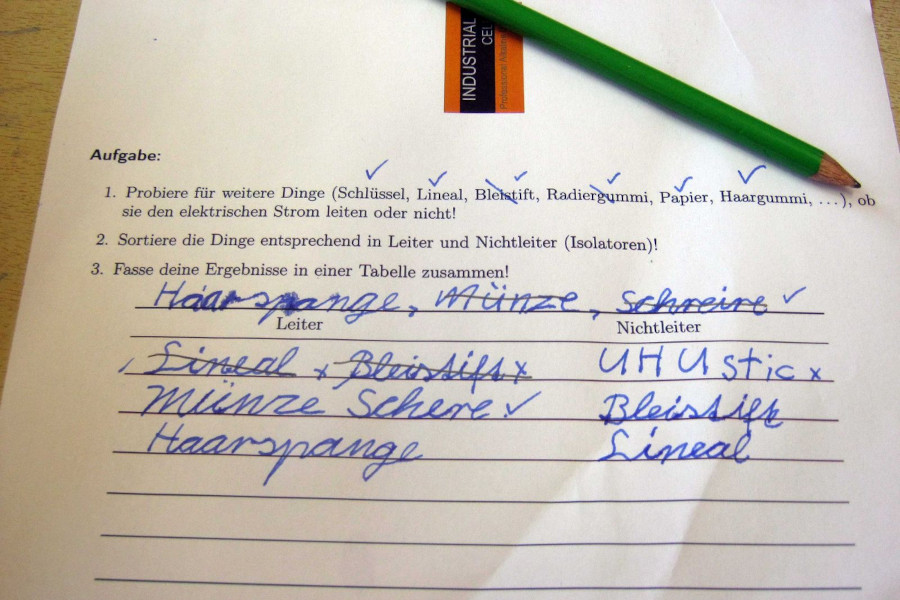 INDUSTRIAL
CEL
Professional
Aufgabe:
1. Probiere für weitere Dinge (Schlüssel, Lineal, Bleistift, Radiergummi, Papier, Haargummi, ...), ob
sie den elektrischen Strom leiten oder nicht!
2. Sortiere die Dinge entsprechend in Leiter und Nichtleiter (Isolatoren)!
3. Fasse deine Ergebnisse in einer Tabelle zusammen!
Haarspange, Münze, Schreire ✓
Leiter Nichtleiter
Lineal x Bleistift x UHU stic x
Münze Schere ✓ Bleistift
Haarspange Lineal